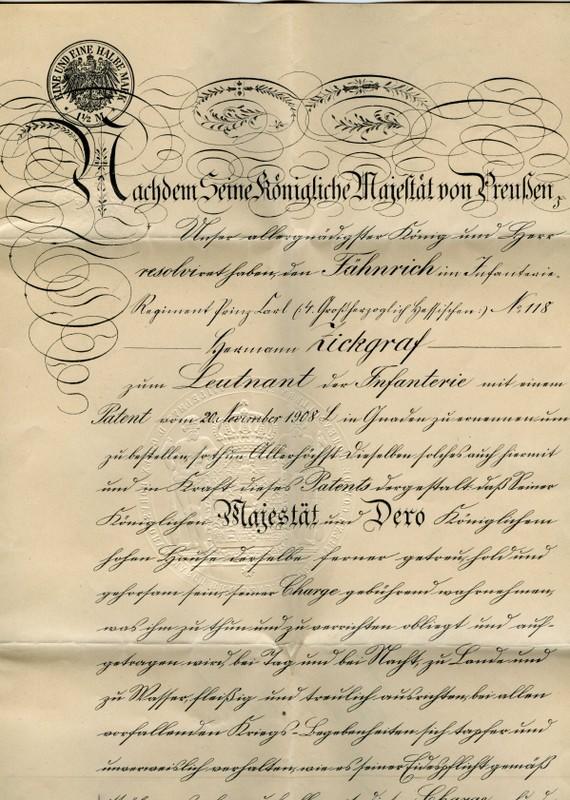 EINE UND EINE HALBE MARK
1½ M.
Nachdem Seine Königliche Majestät von Preußen,
Unser allergnädigster König und Herr
resolviret haben, den Fähnrich im Infanterie-
Regiment Prinz Carl (4. Großherzoglich Hessischen:) No 118
Hermann Zickgraf
zum Leutnant der Infanterie mit einem
Patent vom 20. November 1908 L in Gnaden zu ernennen und
zu bestellen, so thun Allerhöchst Dieselben solches auch hiermit
und in Kraft dieses Patents dergestalt, daß Seiner
Königlichen Majestät und Dero Königlichem
hohen Hause derselbe ferner getreu, hold und
gehorsam sein, seiner Charge gebührend wahrnehmen,
was ihm zu thun und zu verrichten obliegt und auf-
getragen wird, bei Tag und bei Nacht, zu Lande und
zu Wasser, fleißig und treulich ausrichten, bei allen
vorfallenden Kriegs-Begebenheiten sich tapfer und
unverweislich verhalten, wie es seiner Eidespflicht gemäß
Charge